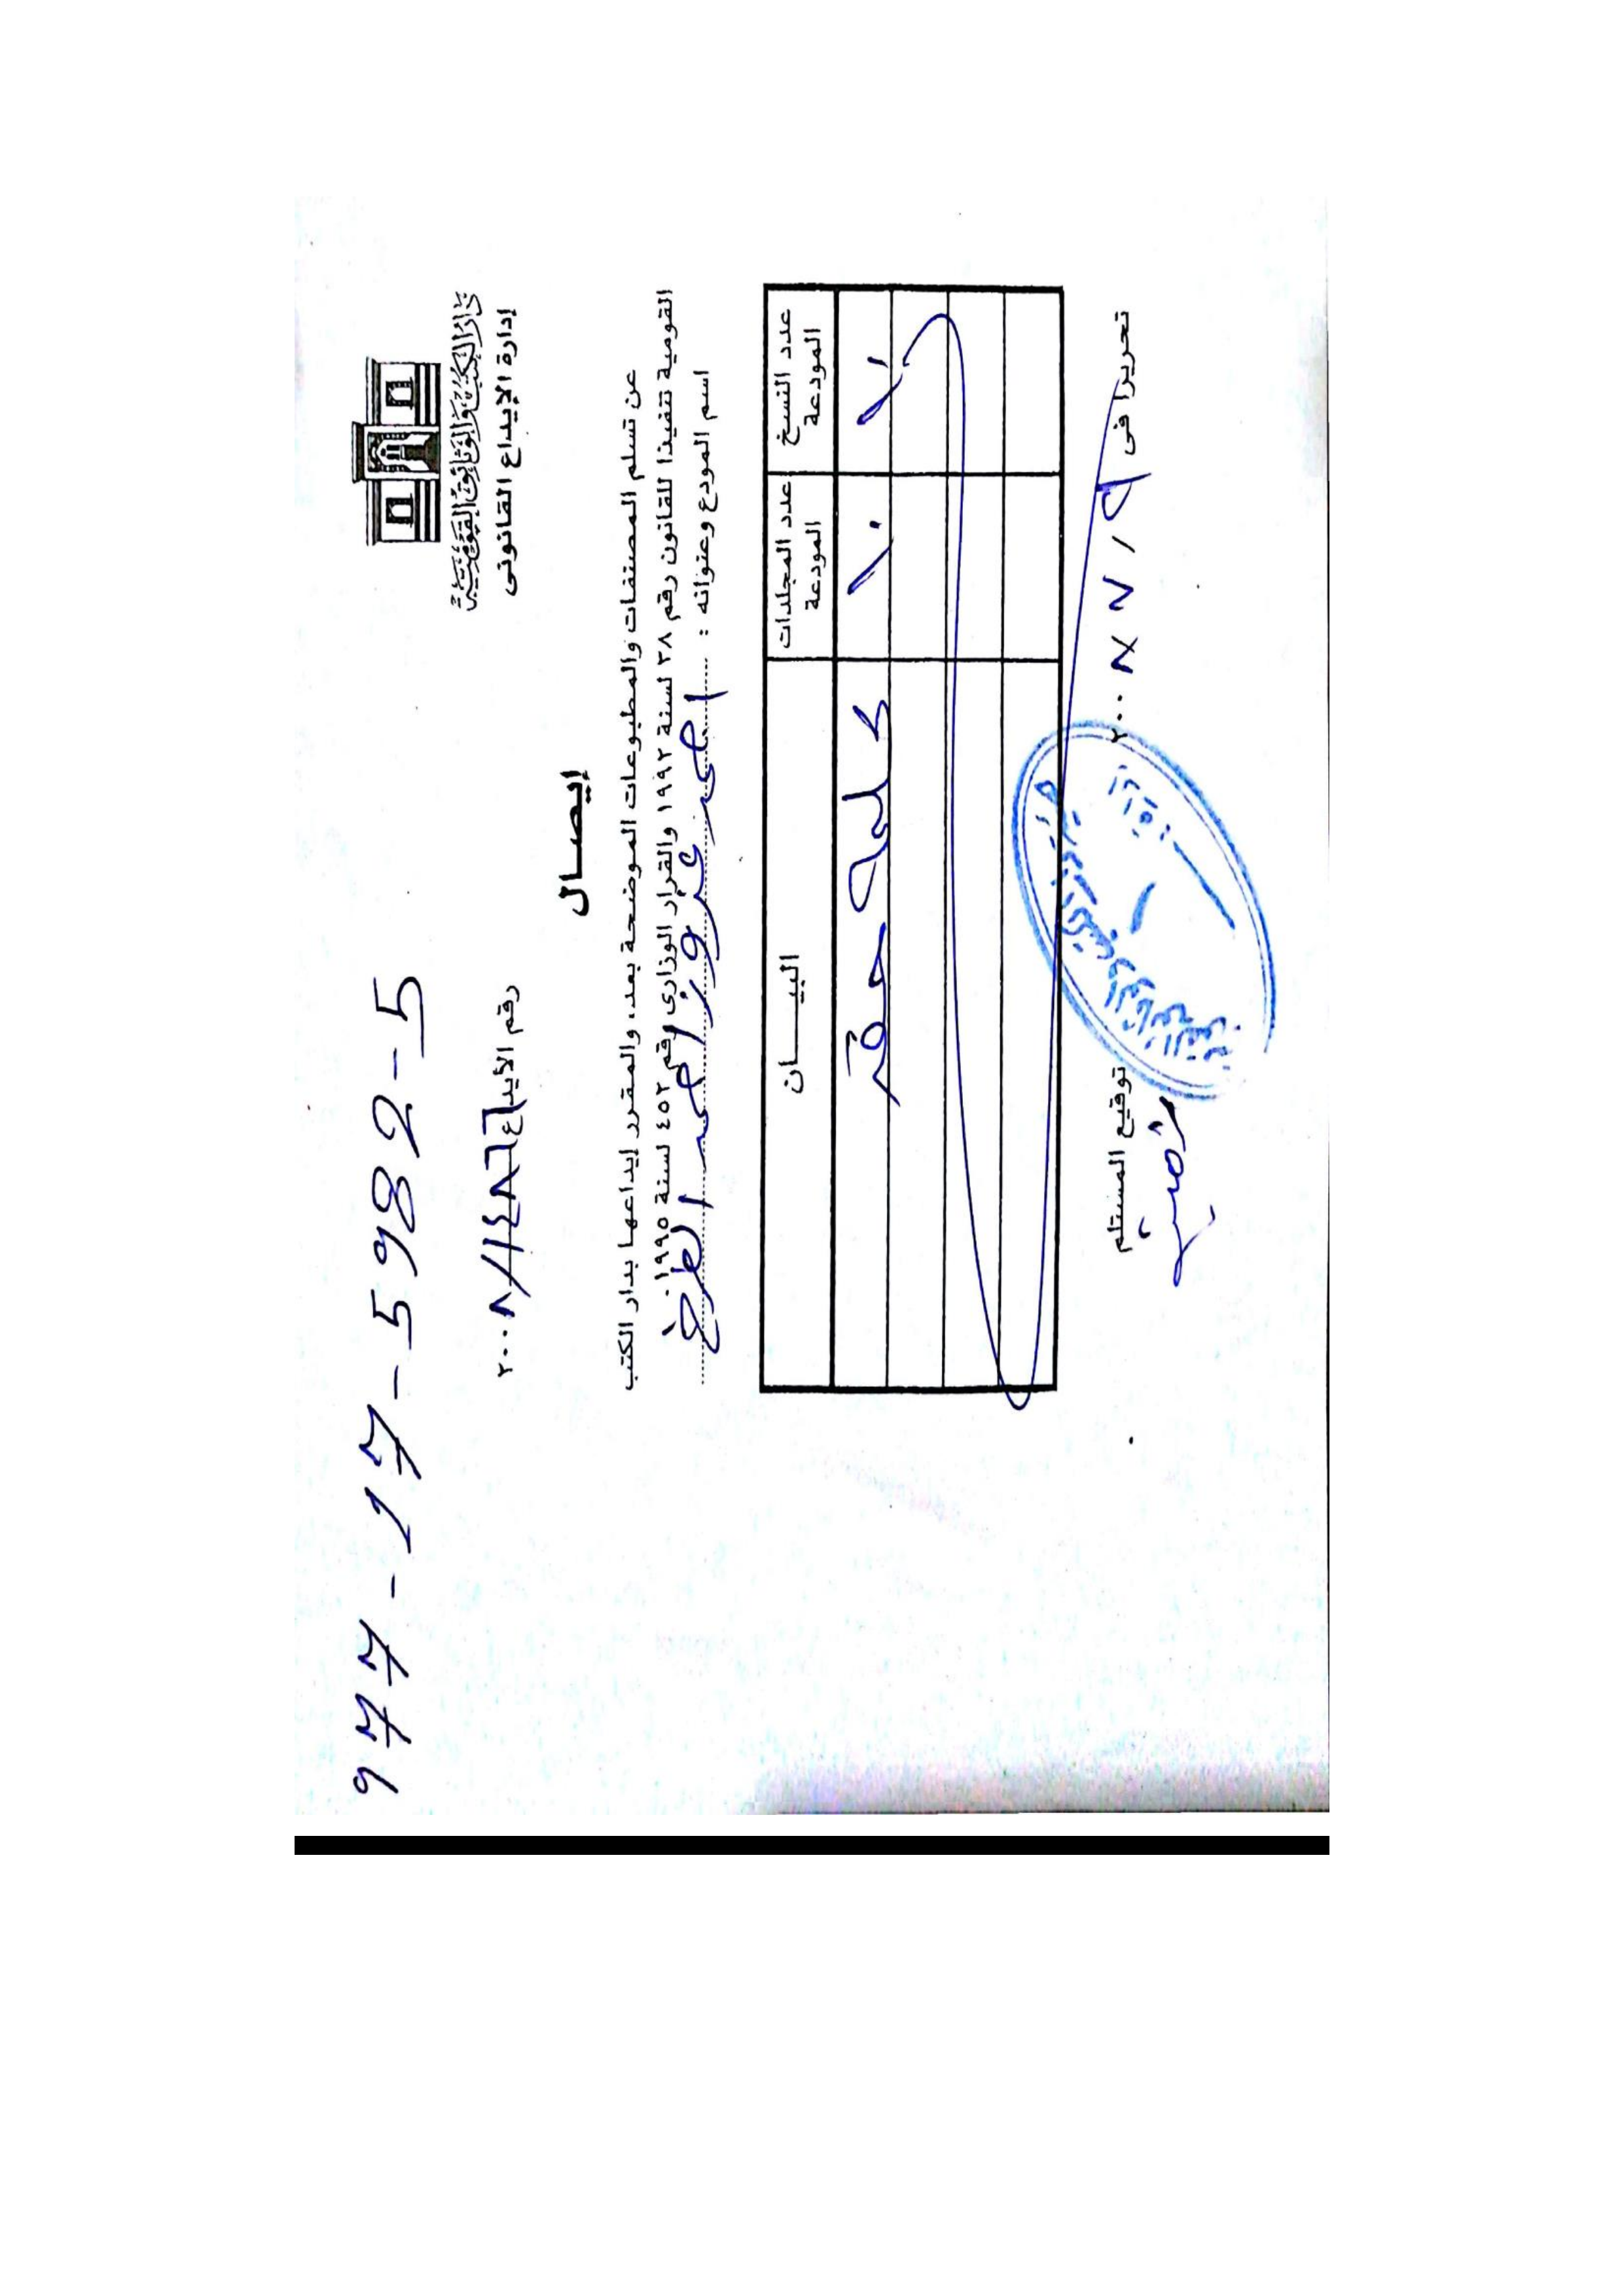 977-17-5982-5
دار الكتب والوثائق القومية
إدارة الإيداع القانونى
رقم الأيداع ١٤٨٨٦ / ٢٠٠٨
إيصـــال
عن تسلم المصنفات والمطبوعات الموضحة بعد، والمقرر إيداعها بدار الكتب
القومية تنفيذا للقانون رقم ٣٨ لسنة ١٩٩٢ والقرار الوزارى رقم ٤٥٢ لسنة ١٩٩٥
اسم المودع وعنوانه : احمد فوزى احمد
البيـــان
عدد المجلدات المودعة
عدد النسخ المودعة
كلمه حق
١٠
تحريرا فى ٩ / ٧ / ٢٠٠٨
توقيع المستلم